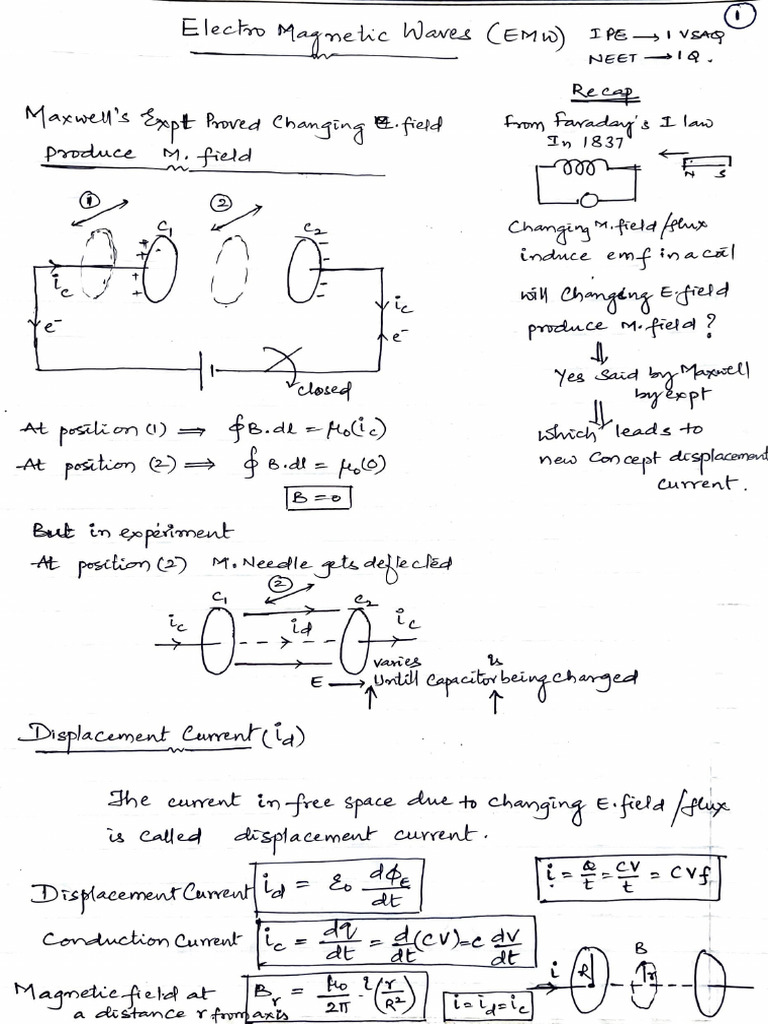 1
Electro Magnetic Waves (EMW)
IPE → 1 VSAQ
NEET → 1Q.
Maxwell's Expt Proved Changing E.field
produce M. field
Recap
From Faraday's I law
In 1837
N S
Changing M.field/flux
induce emf in a coil
will Changing E.field
produce M.field?
⇓
Yes said by Maxwell
by expt
⇓
which leads to
new concept displacement
current.
① ②
C₁ C₂
+ + + + +
- - - - -
i_c i_c
e⁻ e⁻
closed
At position (1) ⇒ ∮B.dl = μ₀(i_c)
At position (2) ⇒ ∮B.dl = μ₀(0)
B = 0
But in experiment
At position (2) M.Needle gets deflected
②
C₁ C₂
i_c i_d i_c
varies is
E → Untill capacitor being charged
Displacement Current (i_d)
The current in free space due to changing E.field/flux
is called displacement current.
Displacement Current i_d = ε₀ dφ_E/dt
i = Q/t = CV/t = CVf
Conduction Current i_c = dq/dt = d/dt (CV) = C dV/dt
Magnetic field at
a distance r from axis
B_r = μ₀/2π · i (r/R²)
i = i_d = i_c
i R B r